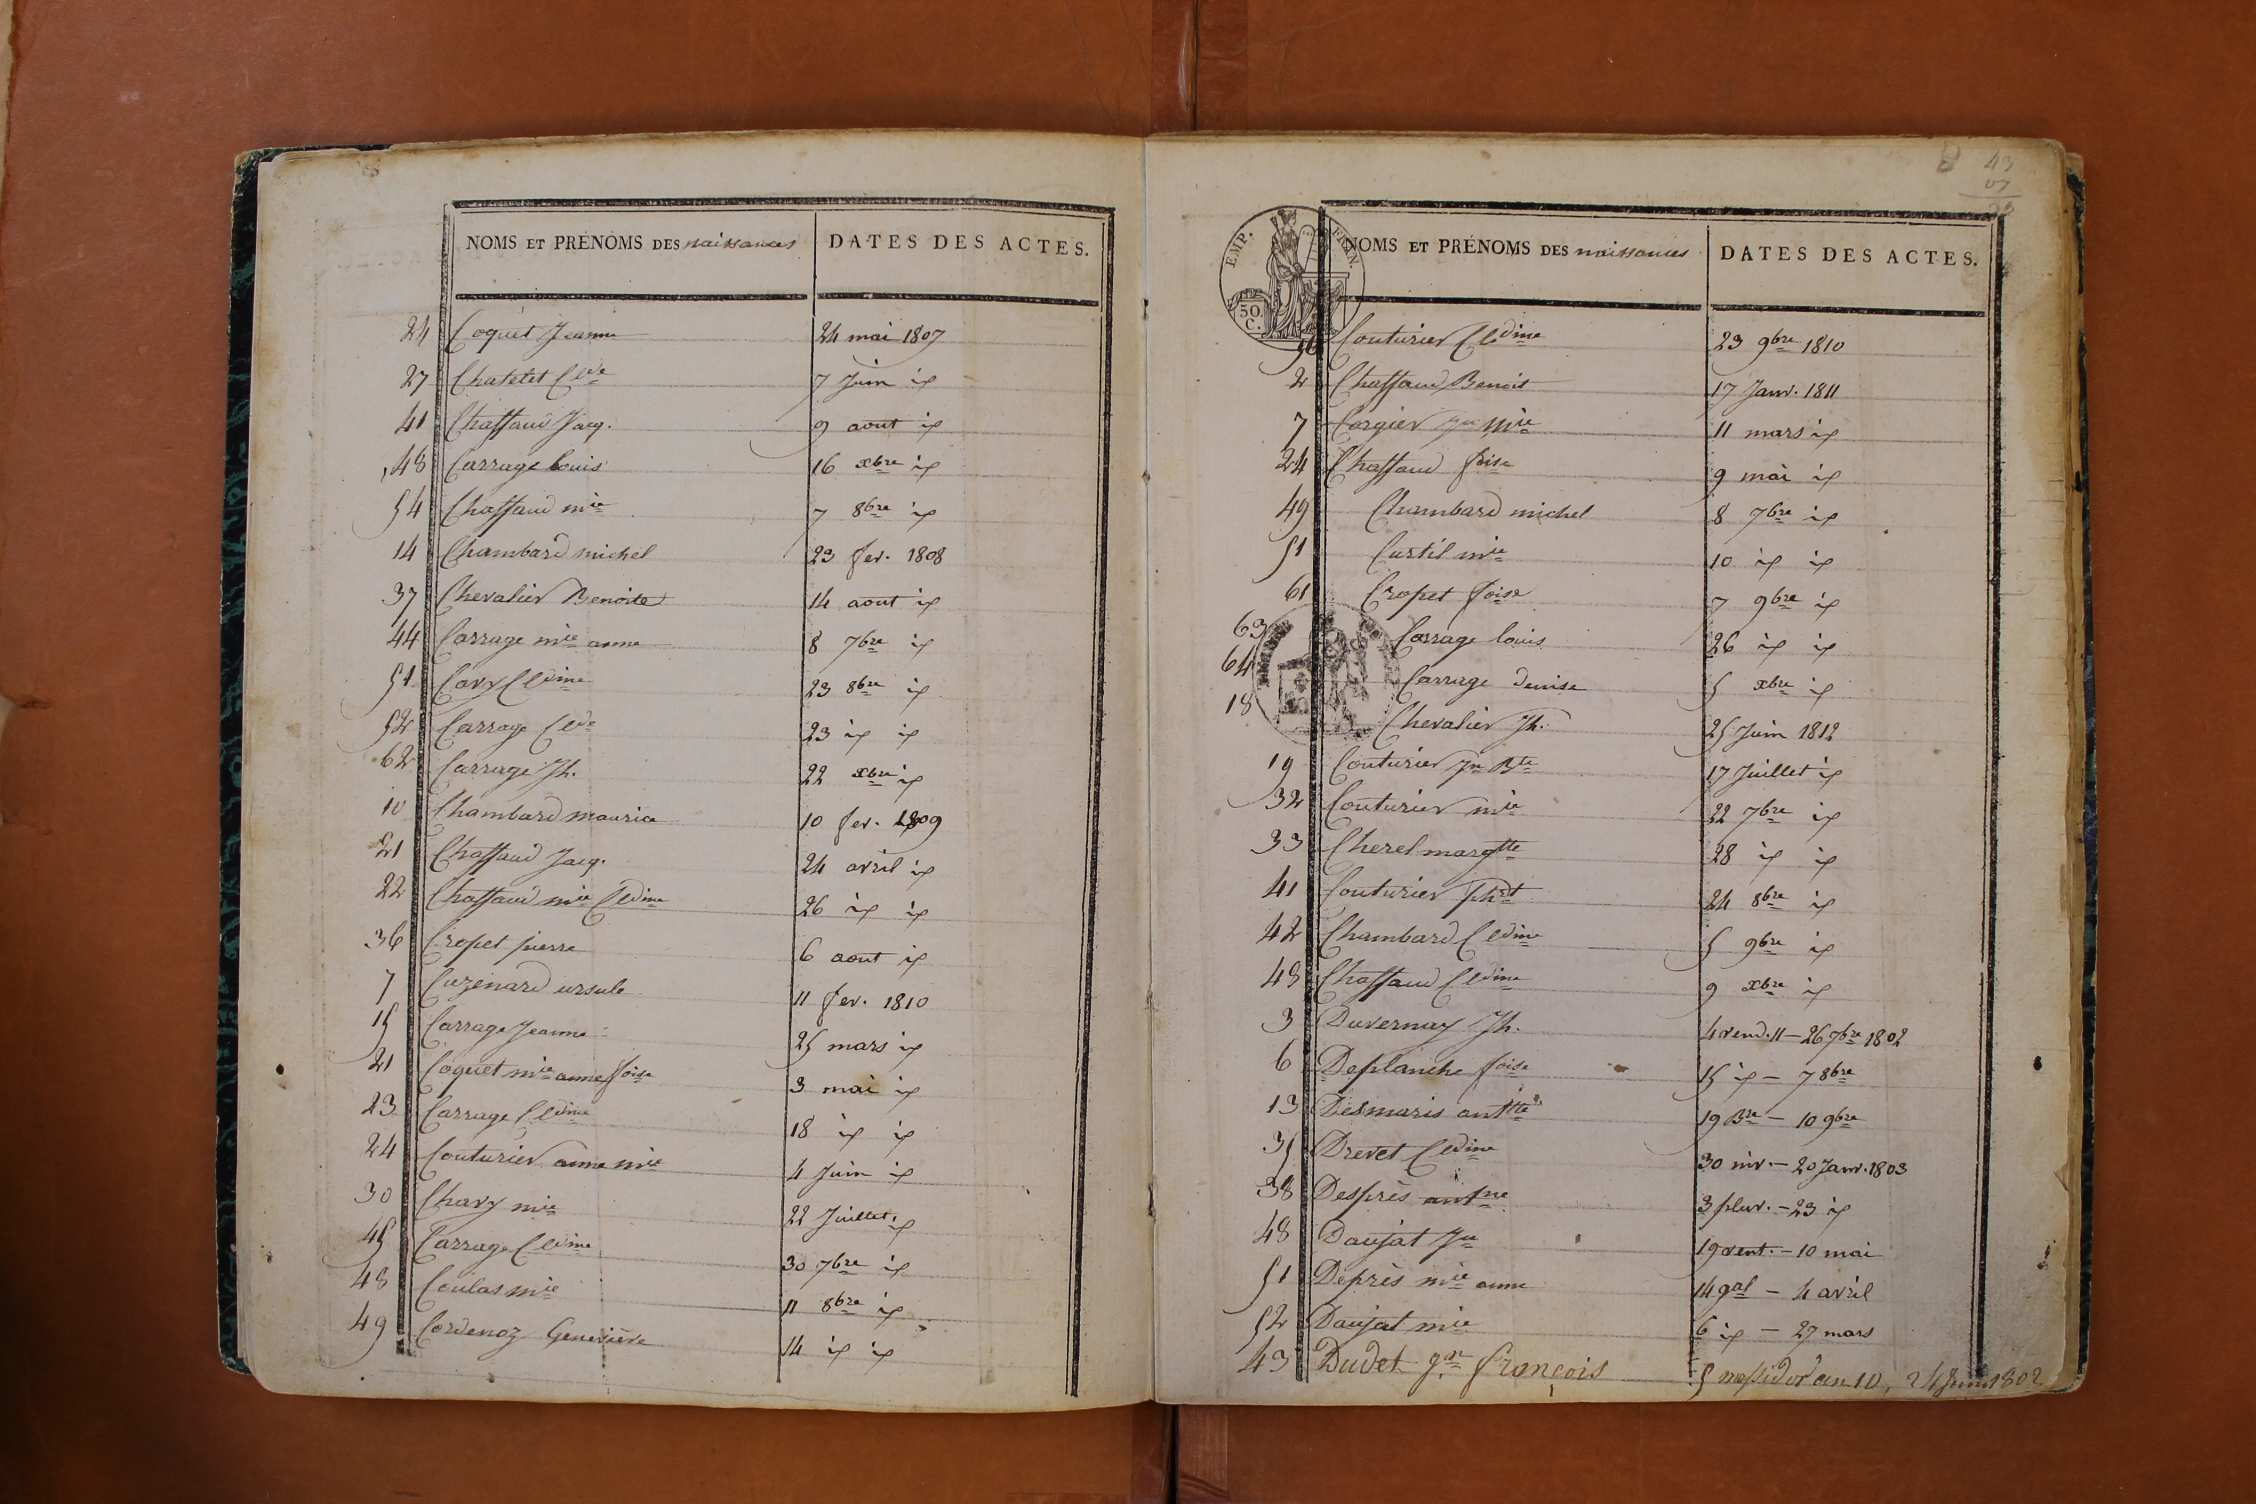 NOMS ET PRÉNOMS DES naissances DATES DES ACTES.
24 Coquet Jeanne 24 mai 1807
27 Chatelet Cl.de 7 Juin id
41 Chaffaud Jacq. 9 aout id
48 Carrage louis 16 xbre id
54 Chaffaud mie 7 8bre id
14 Chambard michel 23 fev. 1808
37 Chevalier Benoite 14 aout id
44 Carrage mie anne 8 7bre id
51 Cary Cldine 23 8bre id
52 Carrage Clde 23 id id
62 Carrage Jh. 22 xbre id
10 Chambard maurice 10 fev. 1809
21 Chaffaud Jacq. 24 avril id
22 Chaffaud mie Cldine 26 id id
36 Cropet pierre 6 aout id
7 Cuzenard ursule 11 fev. 1810
15 Carrage Jeanne 25 mars id
21 Coquet mie anne foise 3 mai id
23 Carrage Cldine 18 id id
24 Couturier anne mie 4 Juin id
30 Chary mie 22 Juillet id
45 Carrage Cldine 30 7bre id
48 Coulas mie 11 8bre id
49 Cordenoz Geneviève 14 id id
43
07
EMP. FRAN.
50
C.
NOMS ET PRÉNOMS DES naissances DATES DES ACTES.
56 Couturier Cldine 23 9bre 1810
2 Chaffaud Benoit 17 Janv. 1811
7 Corgier Jne Mie 11 mars id
24 Chaffaud foise 9 mai id
49 Chambard michel 8 7bre id
51 Curtil mie 10 id id
61 Cropet foise 7 9bre id
63 Carrage louis 26 id id
64 Carrage denise 5 xbre id
18 Chevalier Jh. 25 Juin 1812
19 Couturier Jn Bte 17 Juillet id
32 Couturier mie 22 7bre id
33 Cherel margtte 28 id id
41 Couturier Phrt 24 8bre id
42 Chambard Cldine 5 9bre id
48 Chaffaud Cldine 9 xbre id
3 Duvernay Jh. 4 vend. 11 - 26 7bre 1802
6 Deplanche foise 15 id - 7 8bre
13 Desmaris antte 19 Bre - 10 9bre
35 Drevet Cldine 30 niv. - 20 Janv. 1803
38 Desprès antne 3 pluv. - 23 id
48 Daujat Jn 19 vent. - 10 mai
51 Deprès mie anne 14 gal - 4 avril
52 Daujat mie 6 id - 27 mars
43 Dudet gne françois 5 messidor an 10, 24 Juin 1802